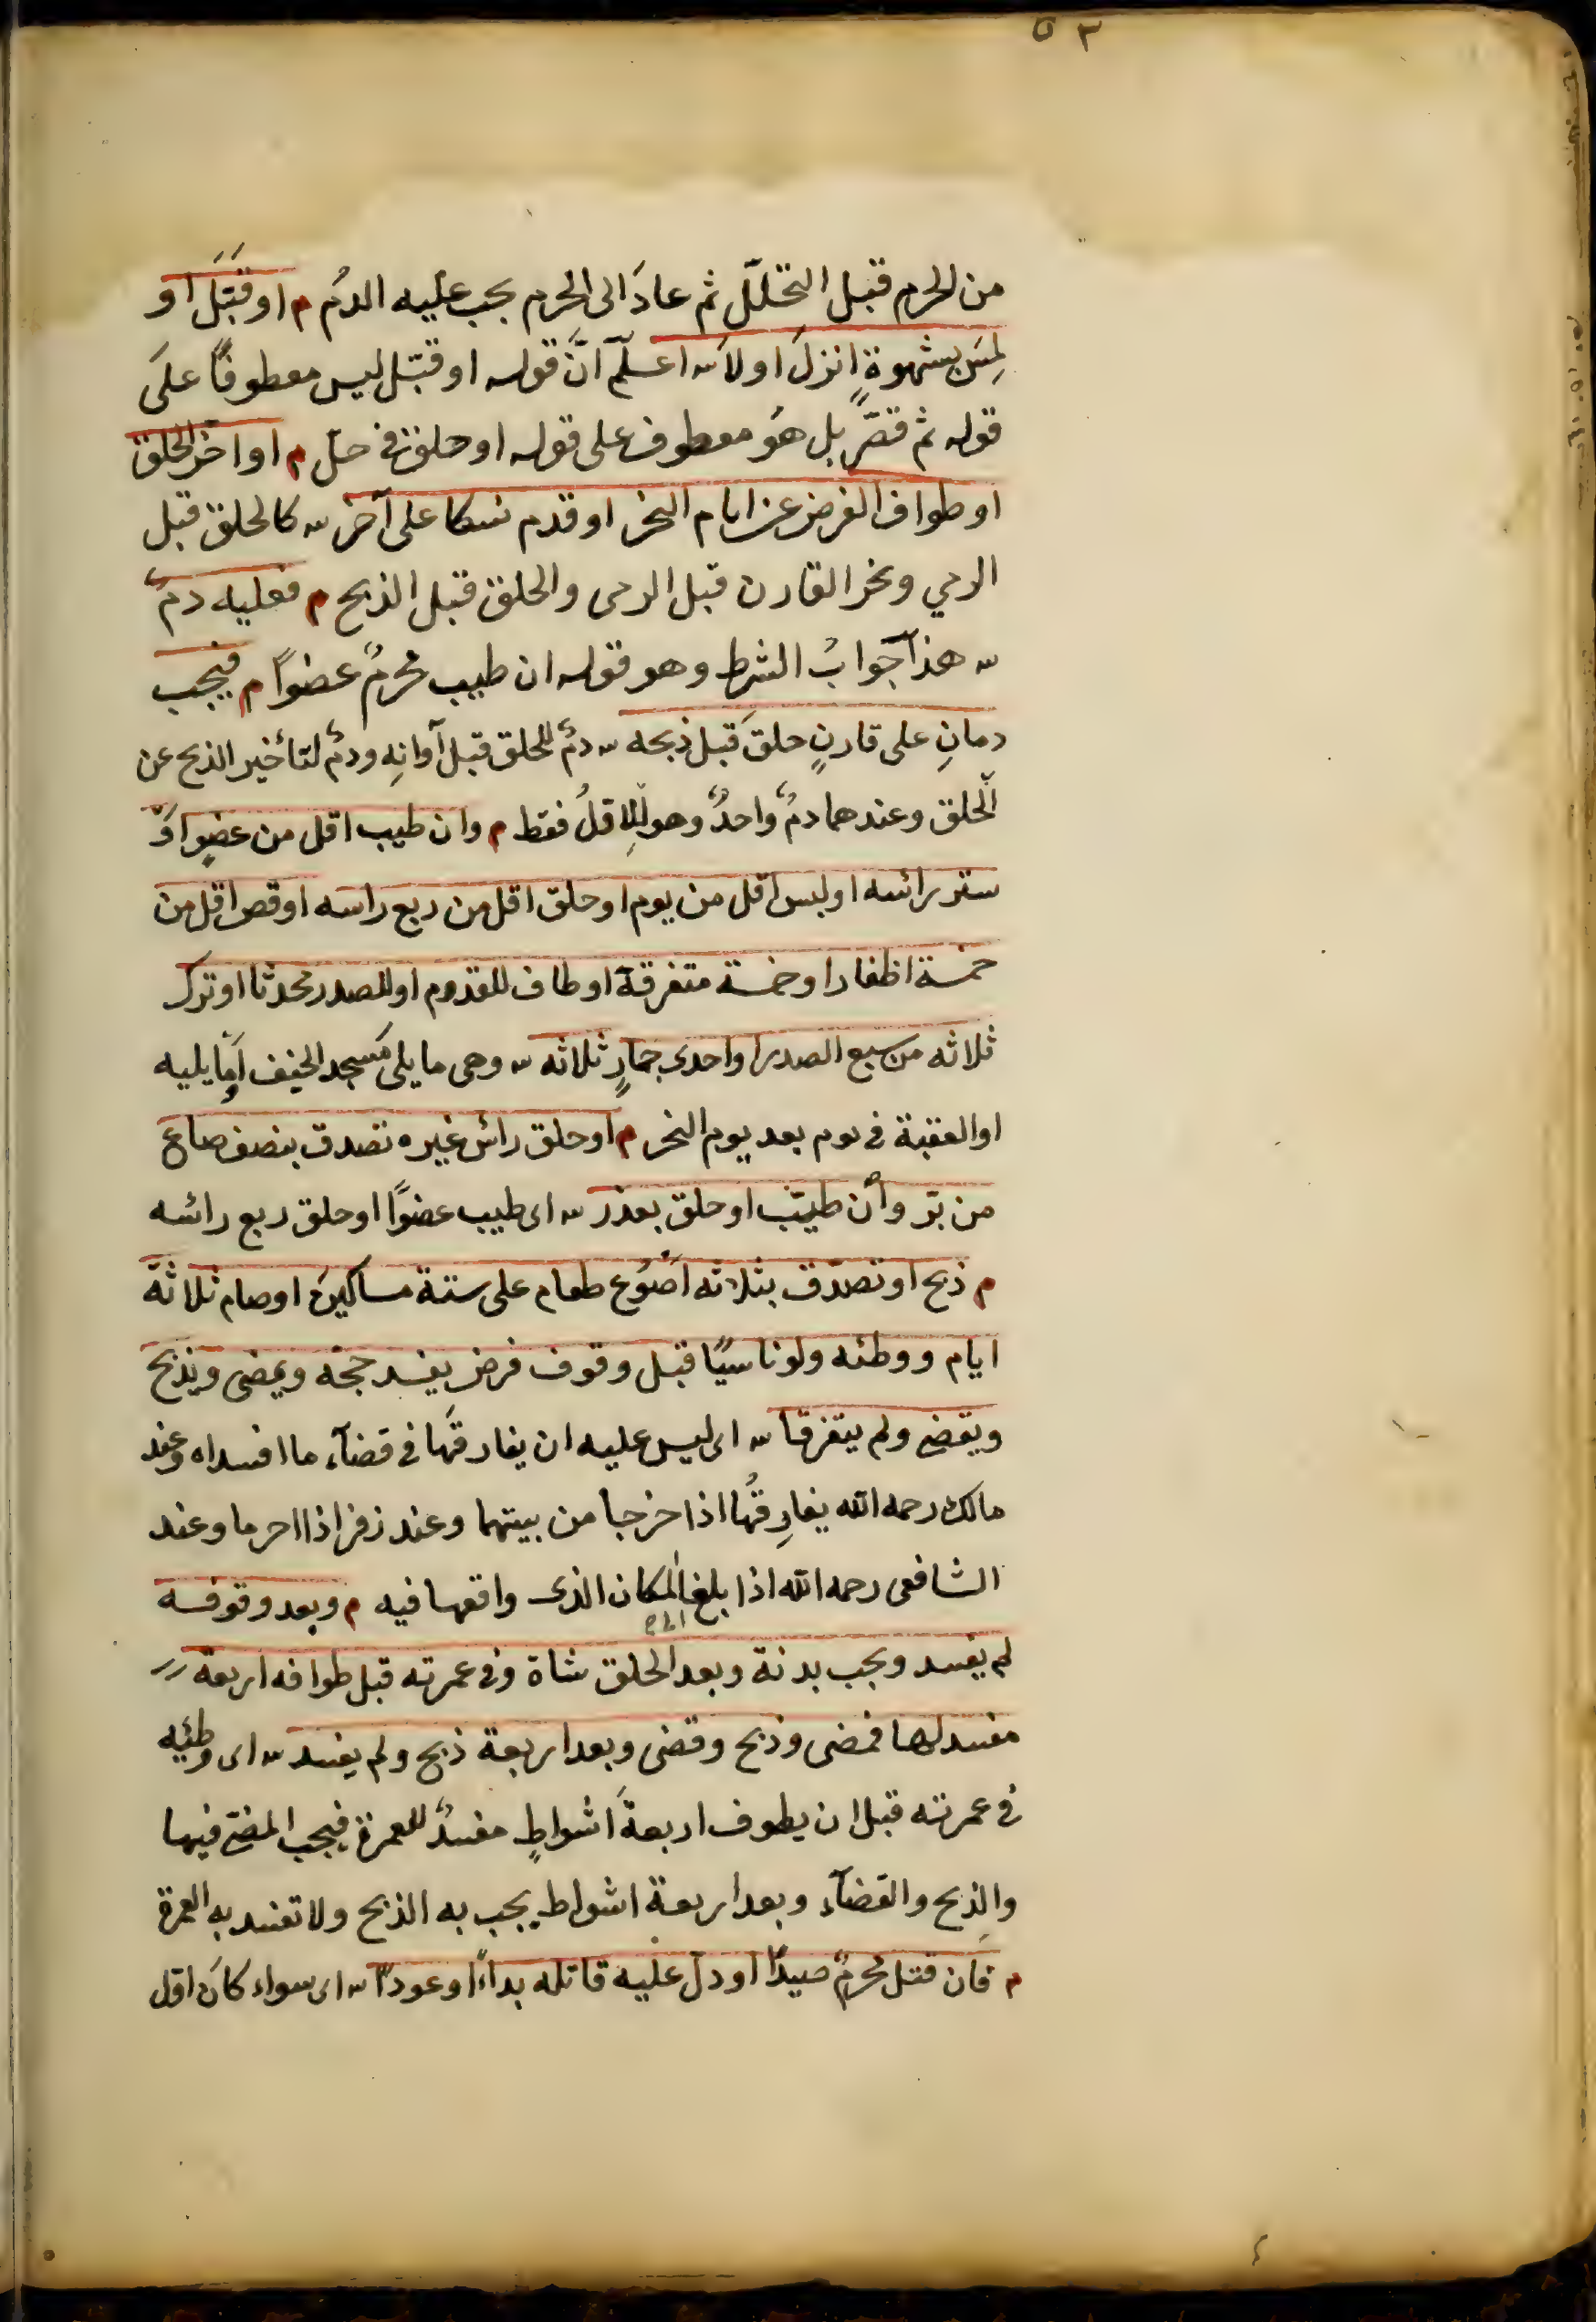 ٥٣
من الحرم قبل التحلّل ثم عادَ الى الحرم يجب عليه الدمُ م او قَبَّلَ او
لمِسَ بشهوةٍ انزلَ اولا س اعلم انَّ قوله او قبّل ليس معطوفًا على
قوله ثم قصّر بل هُو معطوف على قوله او حلق فى حلّ م او اخّر الحلق
او طواف الفرض عن ايام النحر او قدم نسكا على آخر س كالحلق قبل
الرمي ونحر القارن قبل الرمى والحلق قبل الذبح م فعليه دمٌ
س هذا جوابُ الشرط وهو قوله ان طيب محرمٌ عضوًا م فيجب
دمانِ على قارنٍ حلقَ قبل ذبحه س دمٌ للحلق قبل آوانِه ودمٌ لتأخير الذبح عن
الحلق وعندهما دمٌ واحدٌ وهو للاقلُ فقط م وان طيب اقل من عضوٍ اوَ
ستر رائسه او لبس اقل من يوم او حلق اقل من ربع راسه او قص اقل من
خمسة اظفار او خمسة متفرقة او طاف للقدوم او للصدر محدثا او ترك
ثلاثه من سبع الصدر او احدى جمارٍ ثلاثه س وهى ما يلى مَسجد الخيف او ما يليه
او العقبة فى يوم بعد يوم النحر م او حلق رائس غيره تصدق بنصف صاع
من برّ وأن طيّب او حلق بعذر س اى طيب عضوًا او حلق ربع رائسه
م ذبح او تصدّق بثلاثه اَصْوُع طعام على ستة مساكينَ او صام ثلاثة
ايام ووطئه ولو ناسيًا قبل وقوف فرض يفسد حجّه ويمضى ويذبح
ويقضى ولم يتفرقا س اى ليس عليه ان يفارقَها فى قضآء ما افسداه وعند
مالك رحمه الله يفارِقُها اذا خرجا من بيتهما وعند زفر اذا احرما وعند
الشافعى رحمه الله اذا بلغ المكان الذى واقعها فيه م وبعد وقوفه
لم يفسد ويجب بدنة وبعد الحلق شاة وفى عمرته قبل طوافه اربعة
مفسد لها فمضى وذبح وقضى وبعد اربعة ذبح ولم يفسد س اى وطئِه
فى عمرته قبل ان يطوف اربعةَ اشواطٍ مفسدٌ للعمرة فيجب المضى فيها
والذبح والقضآء وبعد اربعة اشواط يجب به الذبح ولا تفسد به العمرة
م فان قتل محرمٌ صيدًا او دلّ عليه قاتله بداءً او عودًا س اى سواء كانَ اول